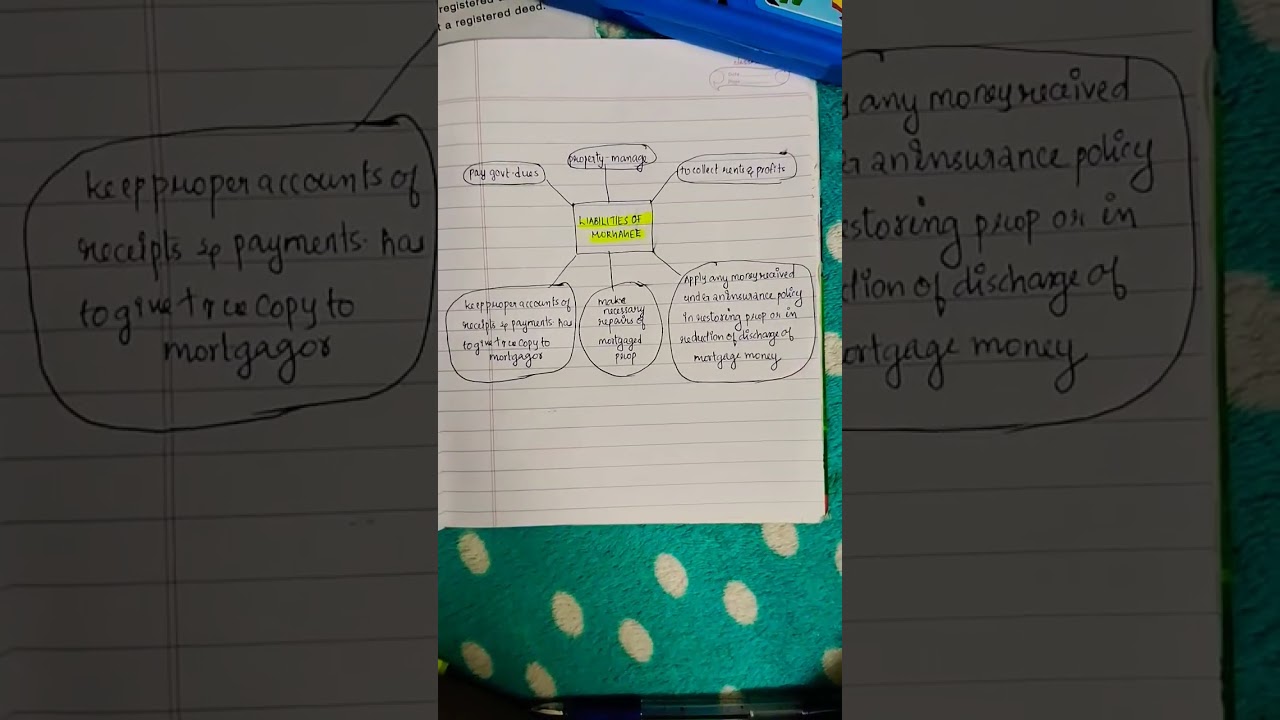 registered
t a registered deed.
pay govt. dues
property-manage
to collect rents & profits
LIABILITIES OF
MORHAHEE
keep proper accounts of
receipts & payments has
to give true copy to
mortgagor
make
necessary
repairs of
mortgaged
prop
Apply any money received
under an insurance policy
in restoring prop or in
reduction of discharge of
mortgage money
keep proper accounts of
receipts & payments. has
to give true copy to
mortgagor
any money received
an insurance policy
estoring prop or in
ction of discharge of
ortgage money